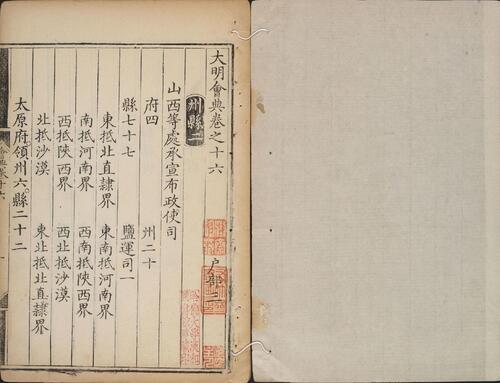 大明會典卷之十六
户部三
州縣二
山西等處承宣布政使司
府四 州二十
縣七十七 鹽運司一
東抵北直隸界 東南抵河南界
南抵河南界 西南抵陝西界
西抵陝西界 西北抵沙漠
北抵沙漠 東北抵北直隸界
太原府領州六縣二十二
會典卷十六